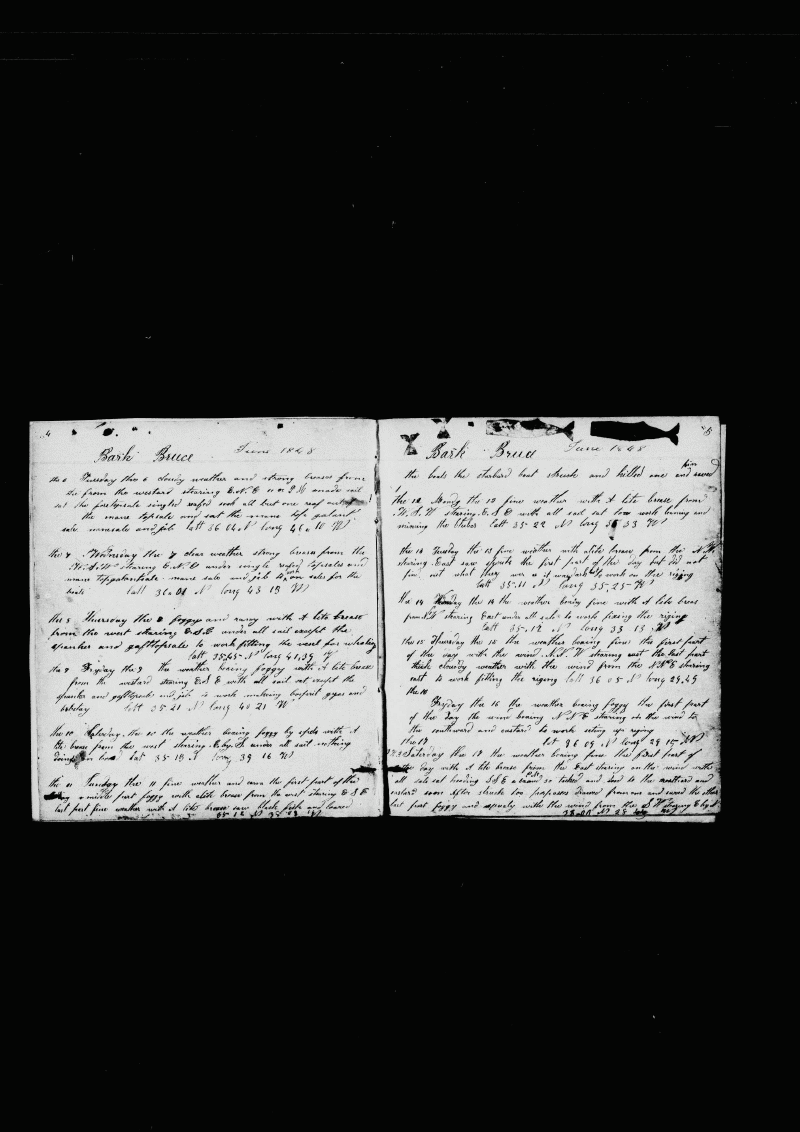 4
Bark Bruce June 1848
the 6 Tuesday the 6 cloudy weather and strong breses from
the from the westard stearing E.N.E
set the foretopsale singled refed and all but one reef out of
the mane topsale and sat the mane top galant
sale mansale and jib latt 36 04 N long 46 10 W
the 7 Wednsday the 7 clear weather strong breses from the
W.S.W stearing E.N.E under single refed topsales and
mane topgalantsale mane sale and jib to work on sales for the
boats latt 36 01 N long 43 13 W
the 8 Thursday the 8 foggy and rany with A lite brese
from the west stearing E.S.E under all sail except the
spanker and gafttopsale to work fitting the vesel for whaling
latt 35-45 N long 41,39 W
the 9 Fryday the 9 the weather beaing foggy with A lite brese
from the westard stearing E.S.E with all sail out except the
spanker and gafttopsale and jib to work making
latt 35 21 N long 40 21 W
the 10 Saterday the 10 the weather beaing foggy by spels with A
lite brese from the west stearing E.by.S under all sail nothing
doing on bord lat 35-18 N long 39 16 W
the 11 Sunday the 11 fine weather and calm the first part of the
day & middle part foggy with alite brese from the west stearing E S E
last part fine weather with A lite brese saw black fish and lowered
35-12 N 35 13 W
5
Bark Bruce June 1848
the boats the starbord boat struck and killed one and saved him
the 12 Mondy the 12 fine weather with A lite brese from
W.S.W stearing E.S.E with all sail sat to work
latt 35-22 N long 36 33 W
the 13 Tusday the 13 fine wether with alite brese from the
stearing East saw spouts the first part of the day but did not
find out what they was to work on the riging
latt 35-11 N long 35,25-W
the 14 the 14 the wether beaing fine with A lite brese
from SW stearing East under all sale to work fixing the riging
latt 35-12 N long 33 13 W
the 15 Thursday the 15 the weather beaing fine the first part
of the day with the wind N.N.W stearing east the last part
thick cloudy weather with the wind from the N.N.E stearing
east to work fitting the riging latt 36 05 N long 29,49
the 16
Fryday the 16 the weather beaing foggy the first part
of the day the wind beaing N N E stearing on the wind to
the southward and eastard to work seting up riging
the 17 lat 36 09 N long 29 15 W
Saterday the 17 the weather beaing fine the first part of
the day with A lite brese from the East stearing on the wind with
all sale sat heading S S E
eastard soon after struck too porposes drawed from one and saved the other
last part foggy and squaly with the wind from the S W